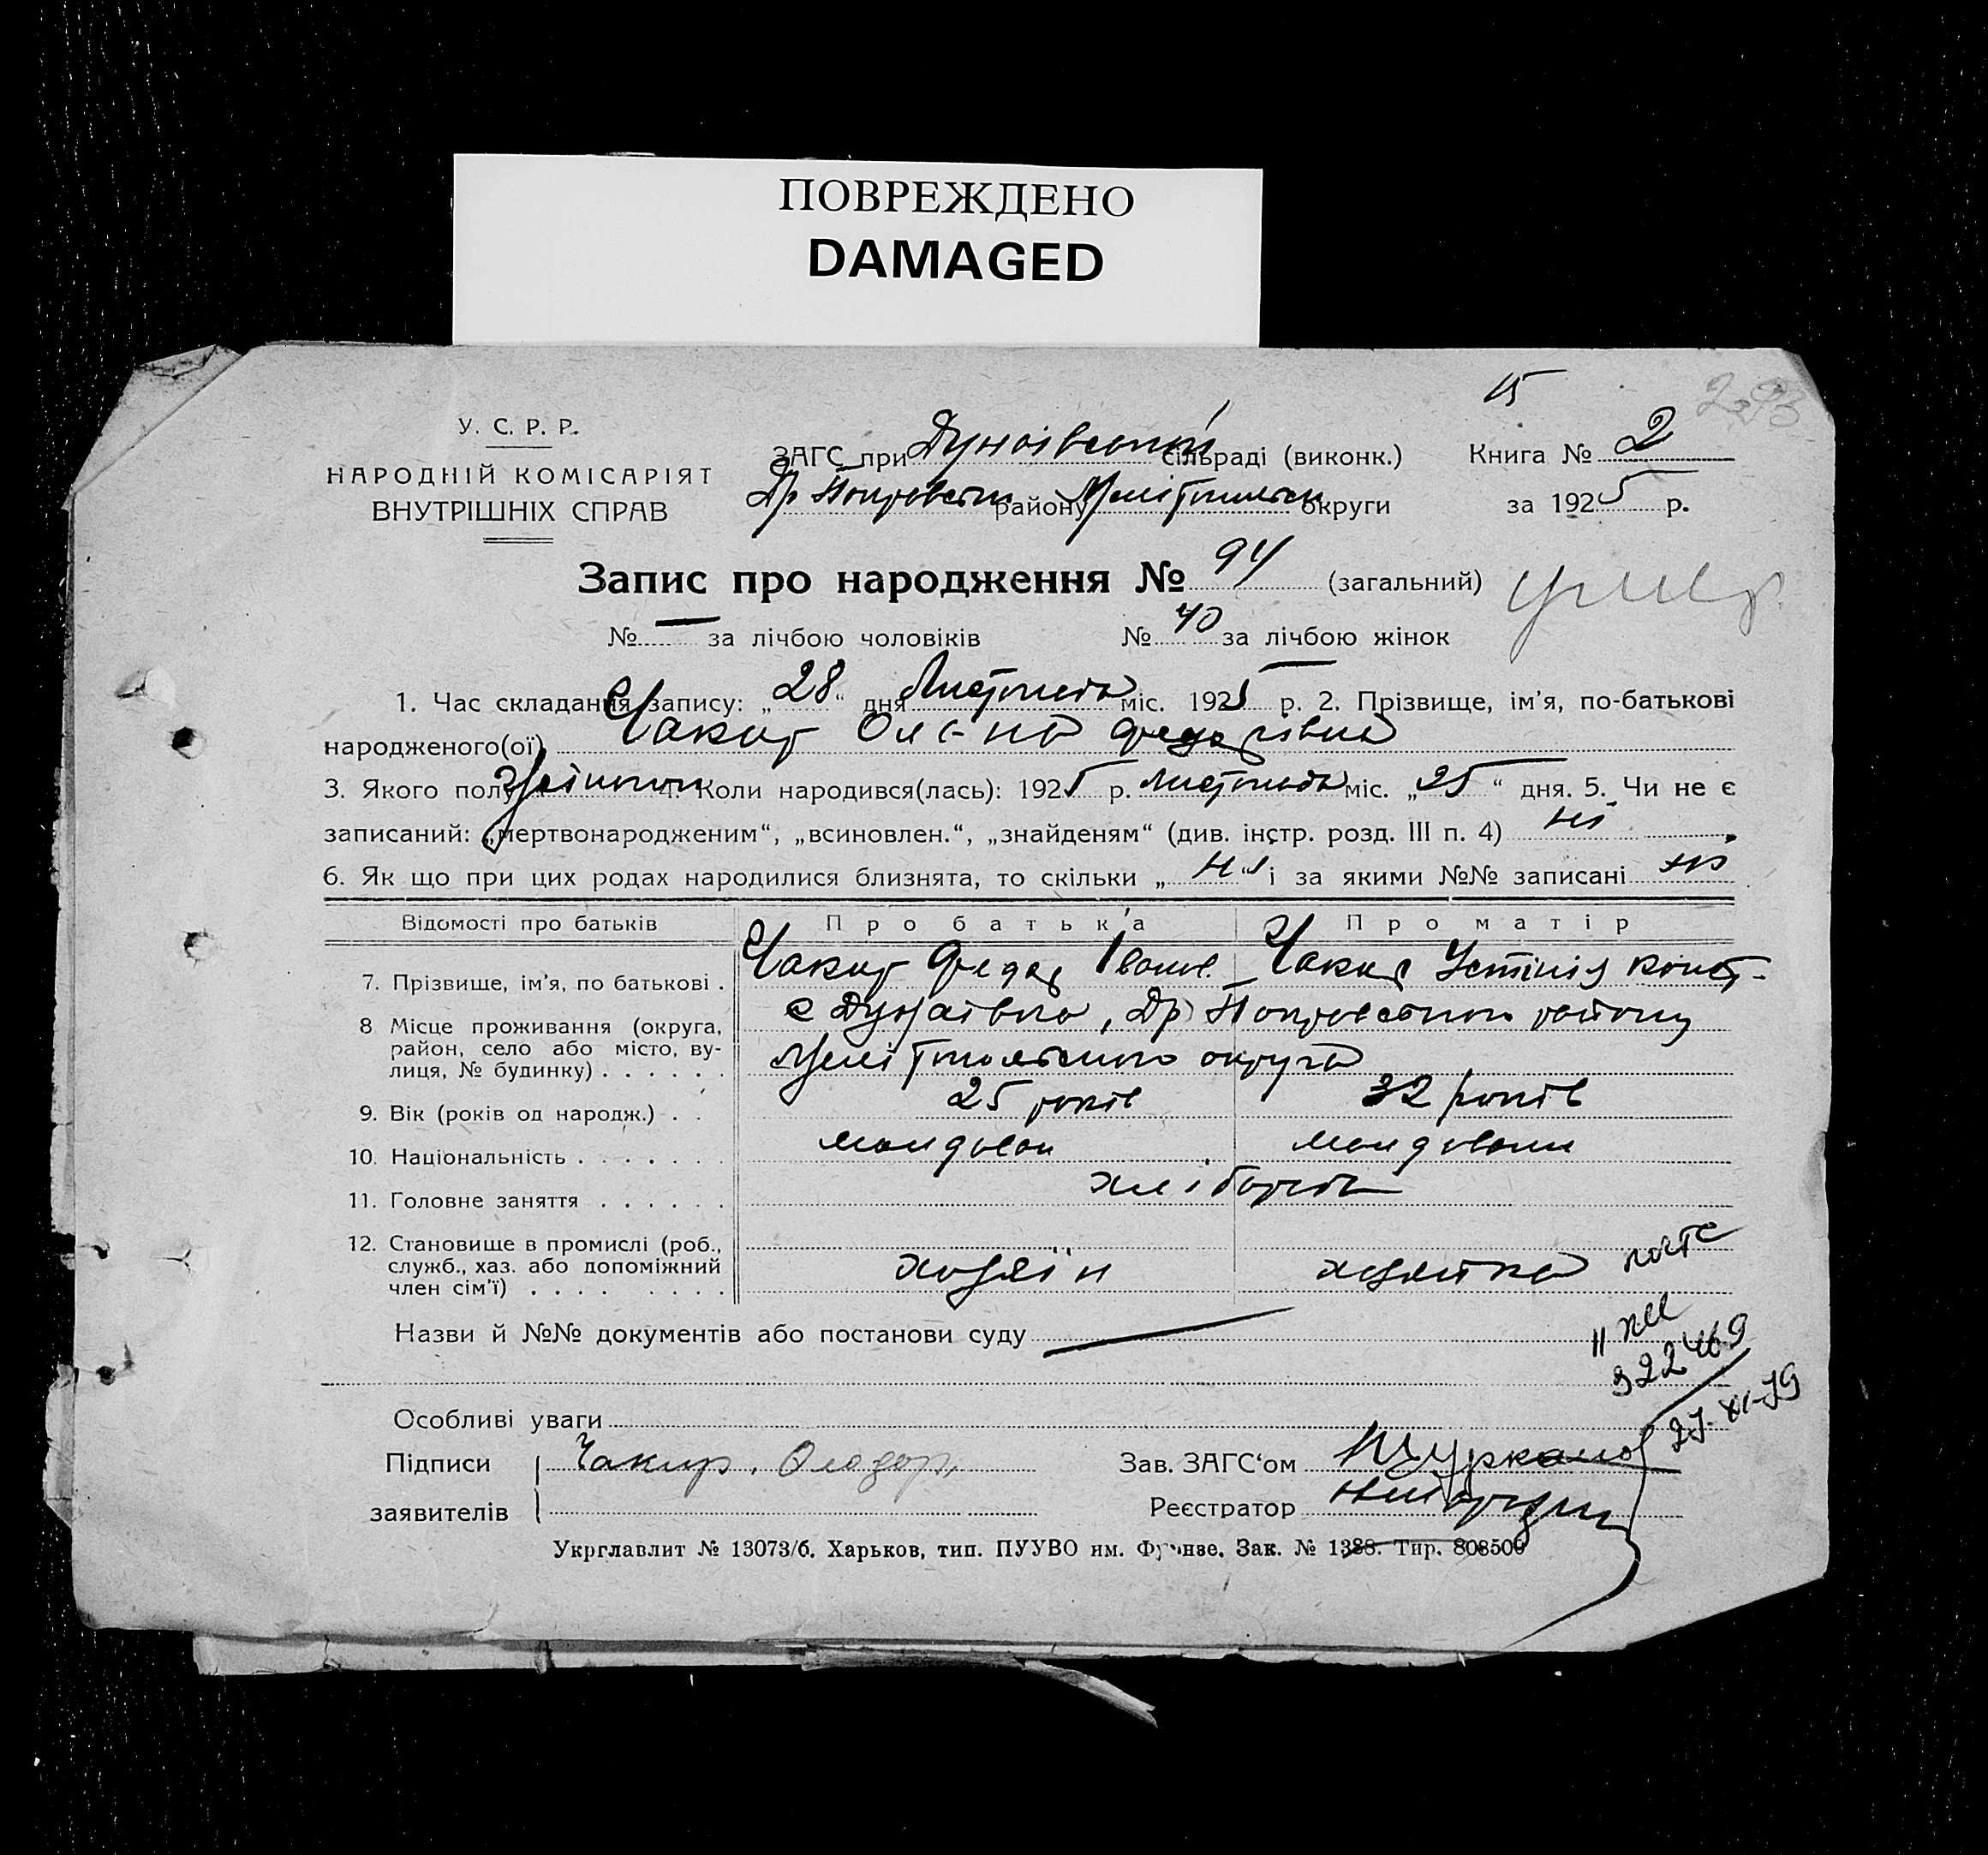 ПОВРЕЖДЕНО
DAMAGED
15
У. С. Р. Р.
НАРОДНІЙ КОМІСАРІЯТ
ВНУТРІШНІХ СПРАВ
ЗАГС при Дунаівській сільраді (виконк.)
Др Покровськ району Мелітопільськ округи
Книга № 2
за 1925 р.
Запис про народження № 94 (загальний)
№ — за лічбою чоловіків № 40 за лічбою жінок
1. Час складання запису: „28“ дня Листопада міс. 1925 р. 2. Прізвище, ім'я, по-батькові
народженого(ої) Чакир Олена Федорівна
3. Якого полу 4. Коли народився(лась): 1925 р. листопада міс. „25“ дня. 5. Чи не є
записаний: „мертвонародженим“, „всиновлен.“, „знайденям“ (див. інстр. розд. III п. 4) ні
6. Як що при цих родах народилися близнята, то скільки „ні“ і за якими №№ записані ні
Відомості про батьків Про батьк'а Про матір
7. Прізвище, ім'я, по батькові . Чакир Федор Іванов. Чакир Устінія Конст-
8 Місце проживання (округа, район, село або місто, вулиця, № будинку) . . . . . . с Дунаівка, Др Покровського району
Мелітопольського округа
9. Вік (років од народж.) . . 25 років 32 років
10. Національність . . . . . . . молдован молдован
11. Головне заняття . . . . . . хлібороб
12. Становище в промислі (роб., служб., хаз. або допоміжний член сім'ї) . . . . . . . . хозяін хозяйка
Назви й №№ документів або постанови суду —
322469
27-XI-79
Особливі уваги
Підписи заявителів Чакир. Федор.
Зав. ЗАГС'ом
Реєстратор
Укрглавлит № 13073/б. Харьков, тип. ПУУВО им. Фрунзе. Зак. № 1388. Тир. 808500